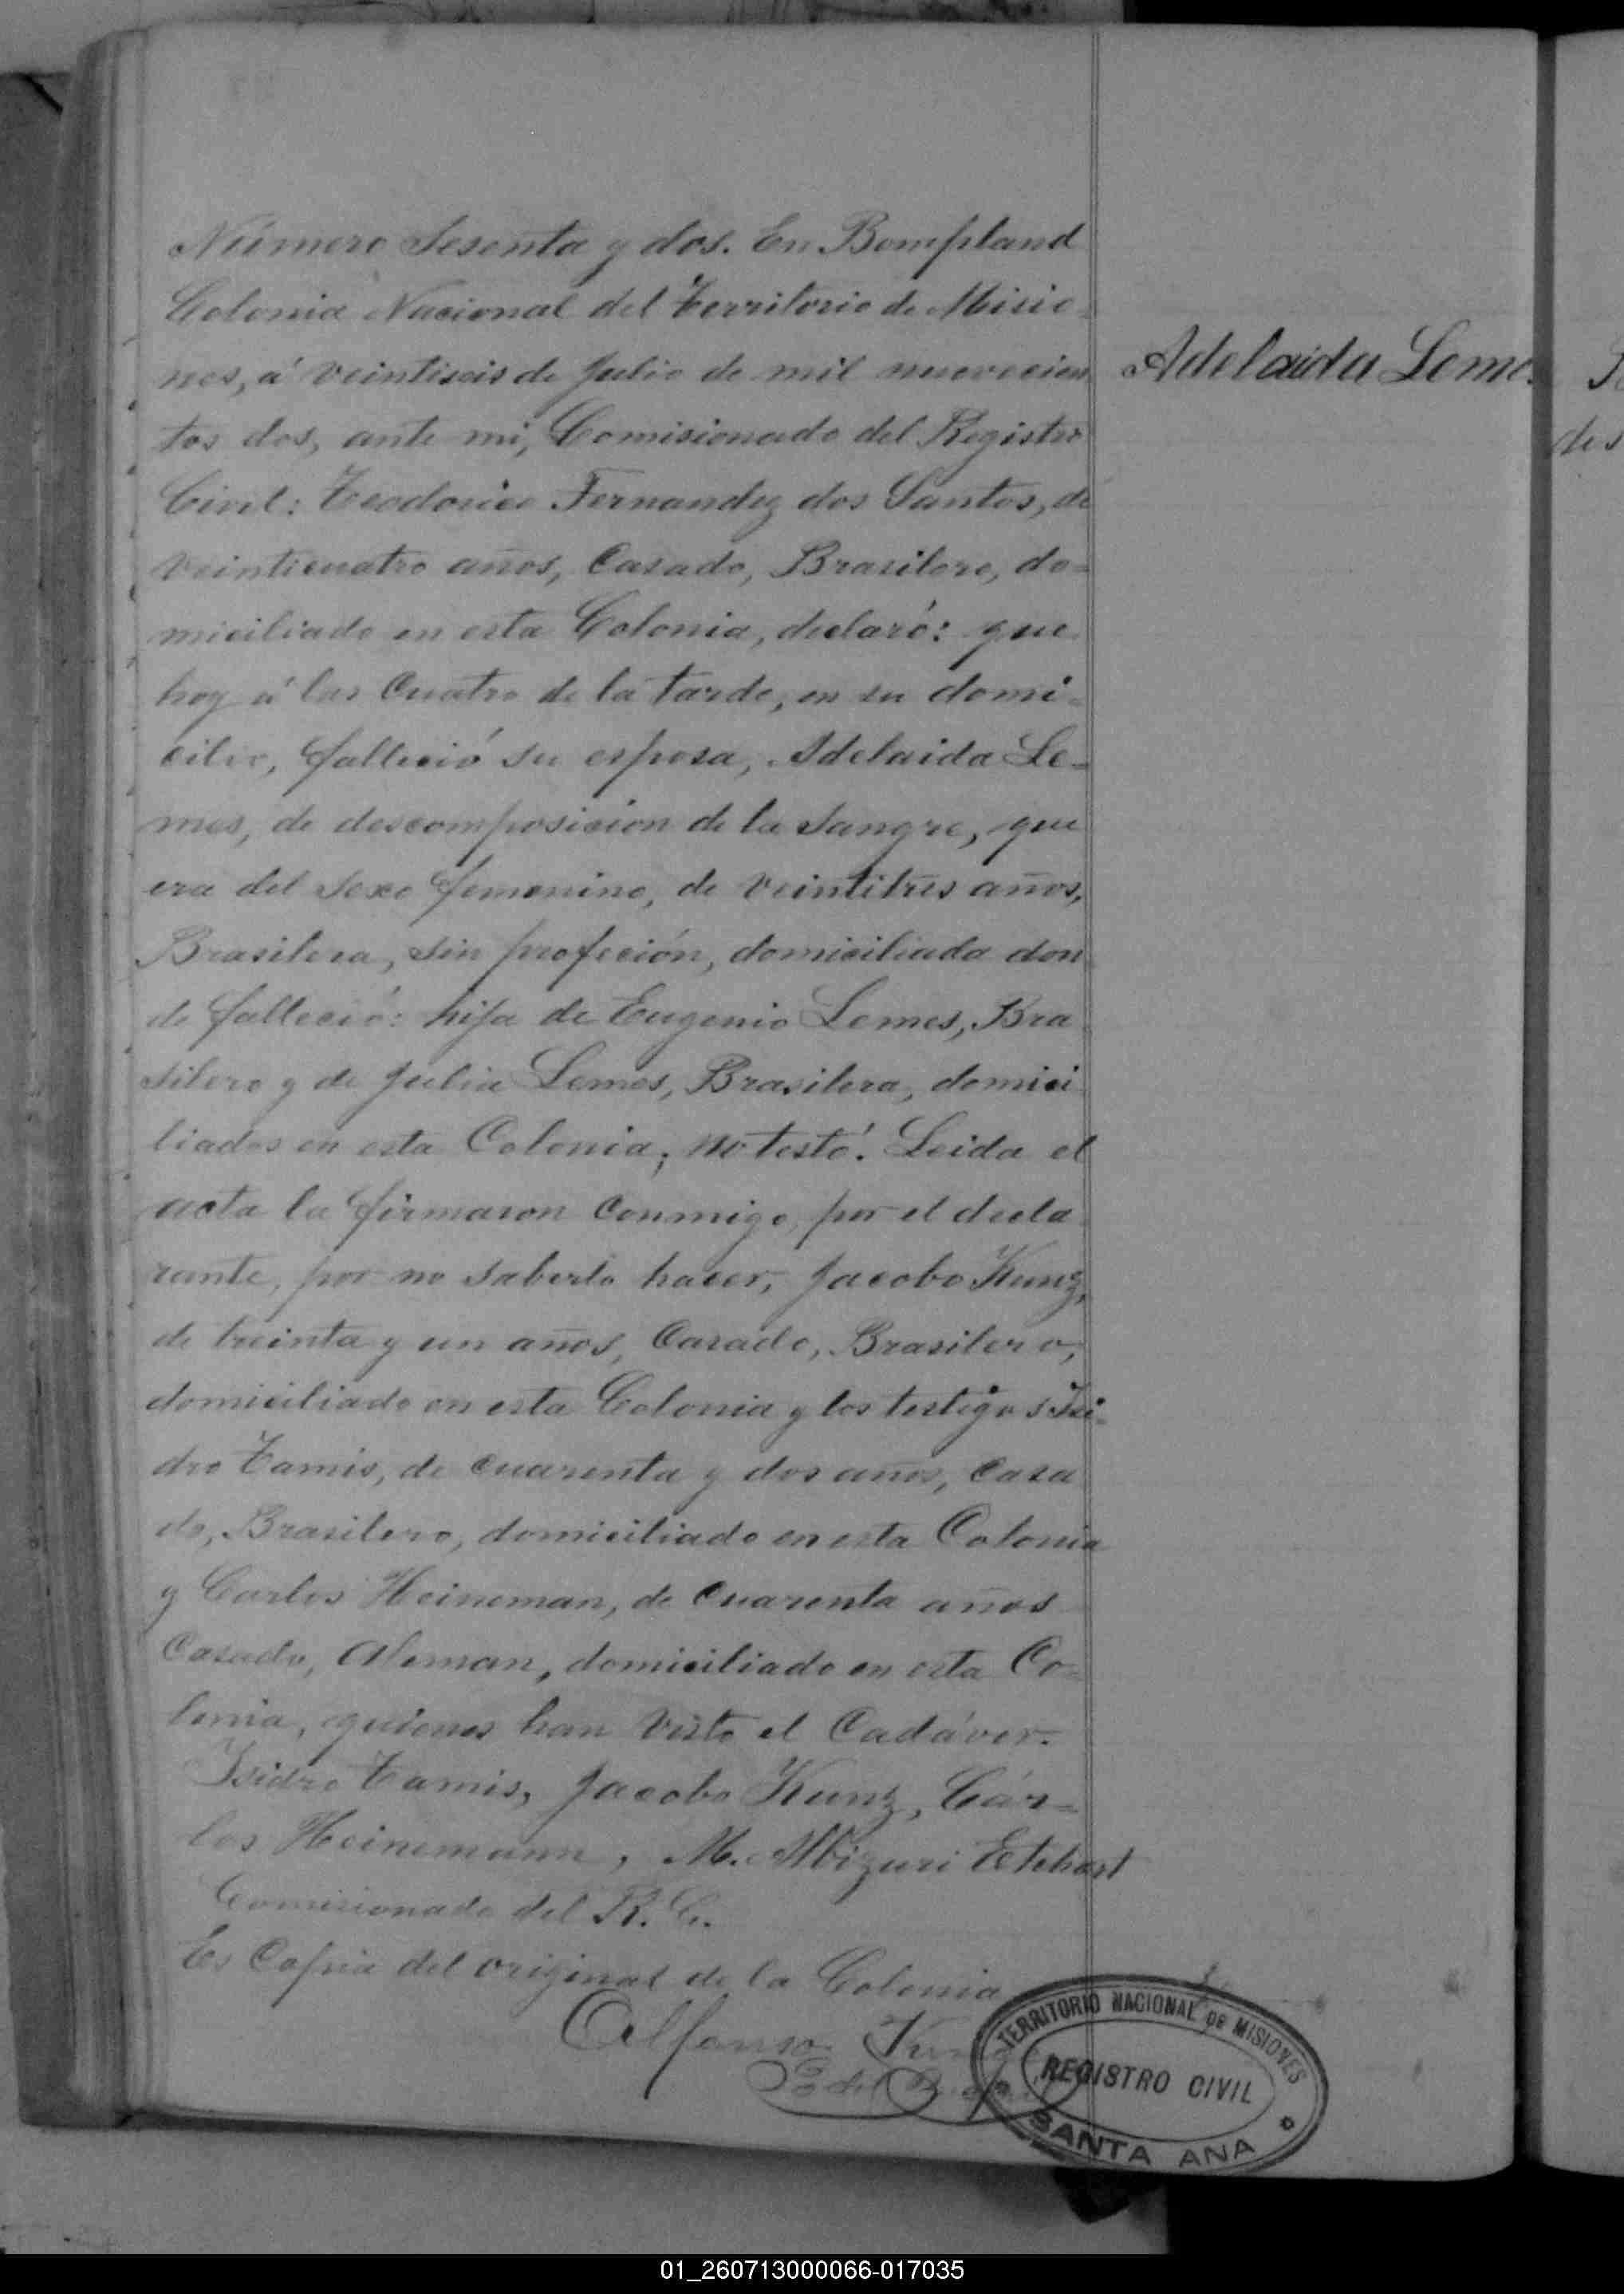 Número Sesenta y dos. En Bompland
Colonia Nacional del Territorio de Misio-
nes, á veintiseis de Julio de mil novecien
tos dos, ante mi, Comisionado del Registro
Civil: Teodorico Fernandez dos Santos, de
veinticuatro años, Casado, Brasilero, do-
miciliado en esta Colonia, declaró: que
hoy á las Cuatro de la tarde, en su domi-
cilio, falleció su esposa, Adelaida Le-
mes, de descomposicion de la Sangre, que
era del Sexo femenino, de veintitres años,
Brasilera, sin profeción, domiciliada don
de falleció: hija de Eugenio Lemes, Bra
silero y de Julia Lemes, Brasilera, domici
liados en esta Colonia; no testó. Leida el
acta la firmaron Conmigo, por el decla
rante, por no saberlo hacer, Jacobo Kunz,
de treinta y un años, Casado, Brasilero,
domiciliado en esta Colonia y los testigos Isi-
dro Tamis, de cuarenta y dos años, Casa
do, Brasilero, domiciliado en esta Colonia
y Carlos Heineman, de Cuarenta años
Casado, Aleman, domiciliado en esta Co-
lonia, quienes han visto el Cadáver.
Isidro Tamis, Jacobo Kunz, Cár-
los Heinemann, M. Mbizuri Etchart
Comisionado del R. C.
Es Copia del original de la Colonia
Alfonso
Adelaida Leme
des
TERRITORIO NACIONAL DE MISIONES
REGISTRO CIVIL
SANTA ANA
01_260713000066-017035